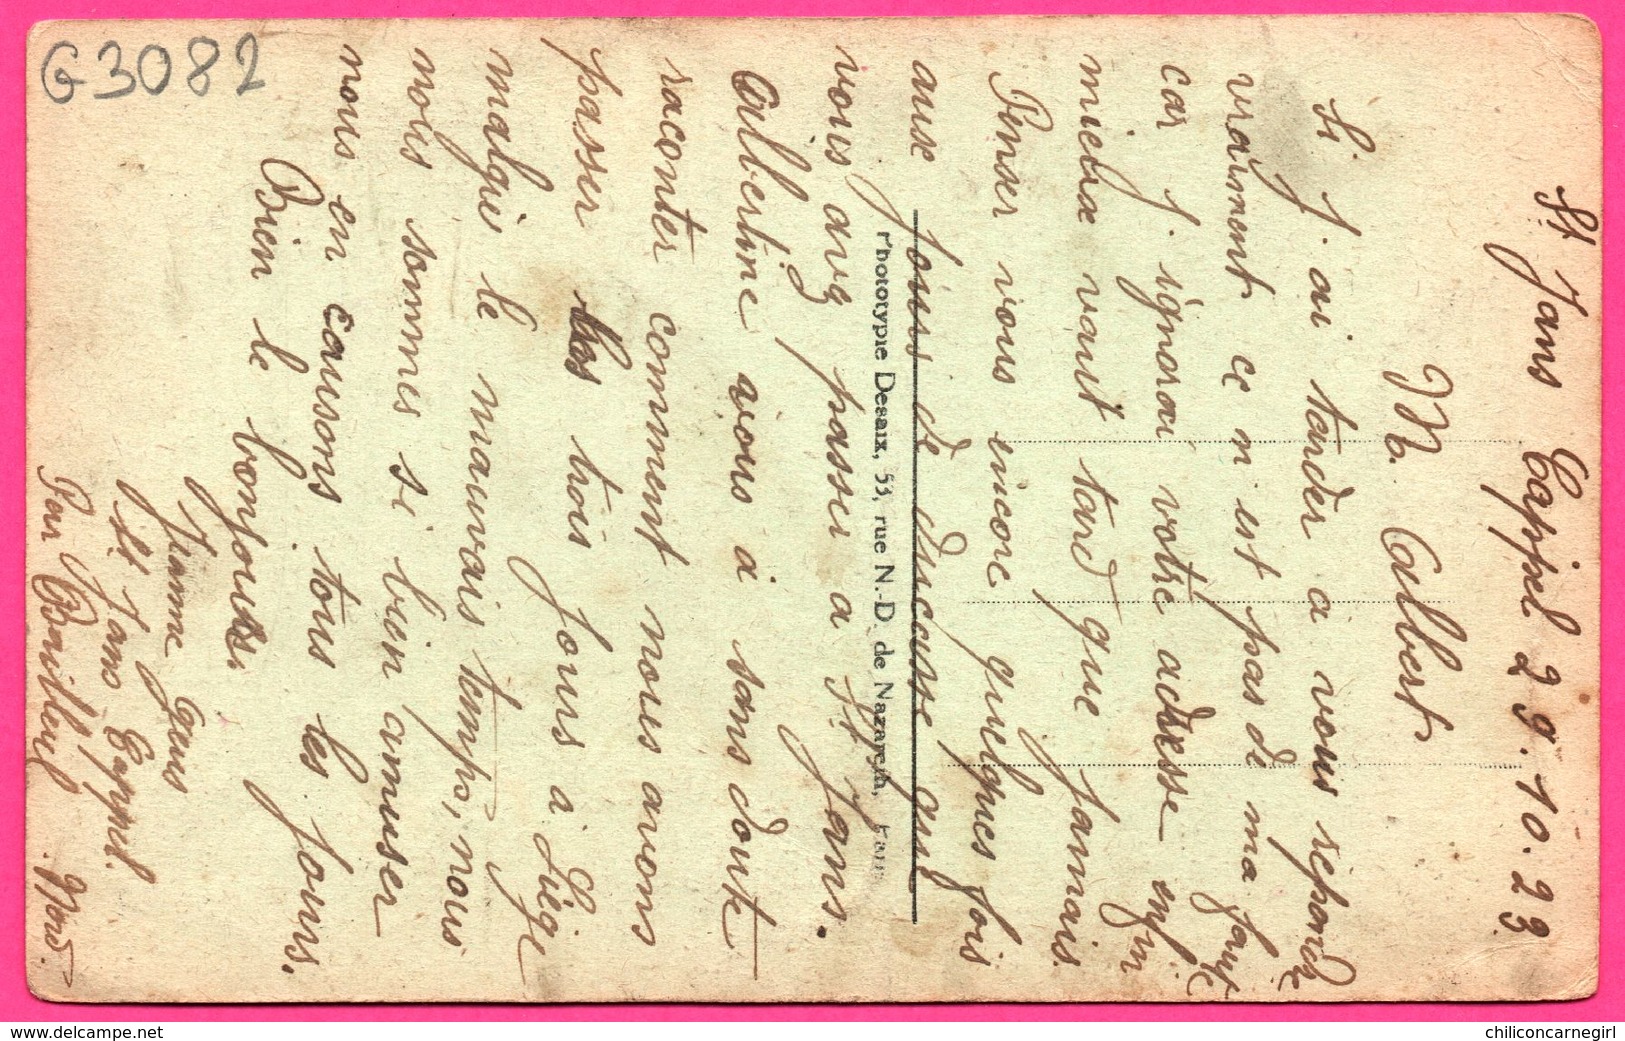 St Jans Cappel 29.10.23
M. Albert
Si j. ai tarder a vous repondre
vraiment ce n est pas de ma faute
car j. ignorai votre adresse enfin
mieux vaut tard que jamais.
Penser vous encore quelques fois
aux jours de ducasse que
vous avez passer a St Jans.
Albertine vous à sans doute
raconter comment nous avons
passer les trois jours a Liège
malgré le mauvais temps, nous
nous sommes si bien amuser
nous en causons tous les jours.
Bien le bonjour.
Jeanne
St Jans Cappel.
Par Bailleul. Nord.
Phototypie Desaix, 53, rue N.-D. de Nazareth,
G3082
chiliconcarnegirl
© delcampe.net